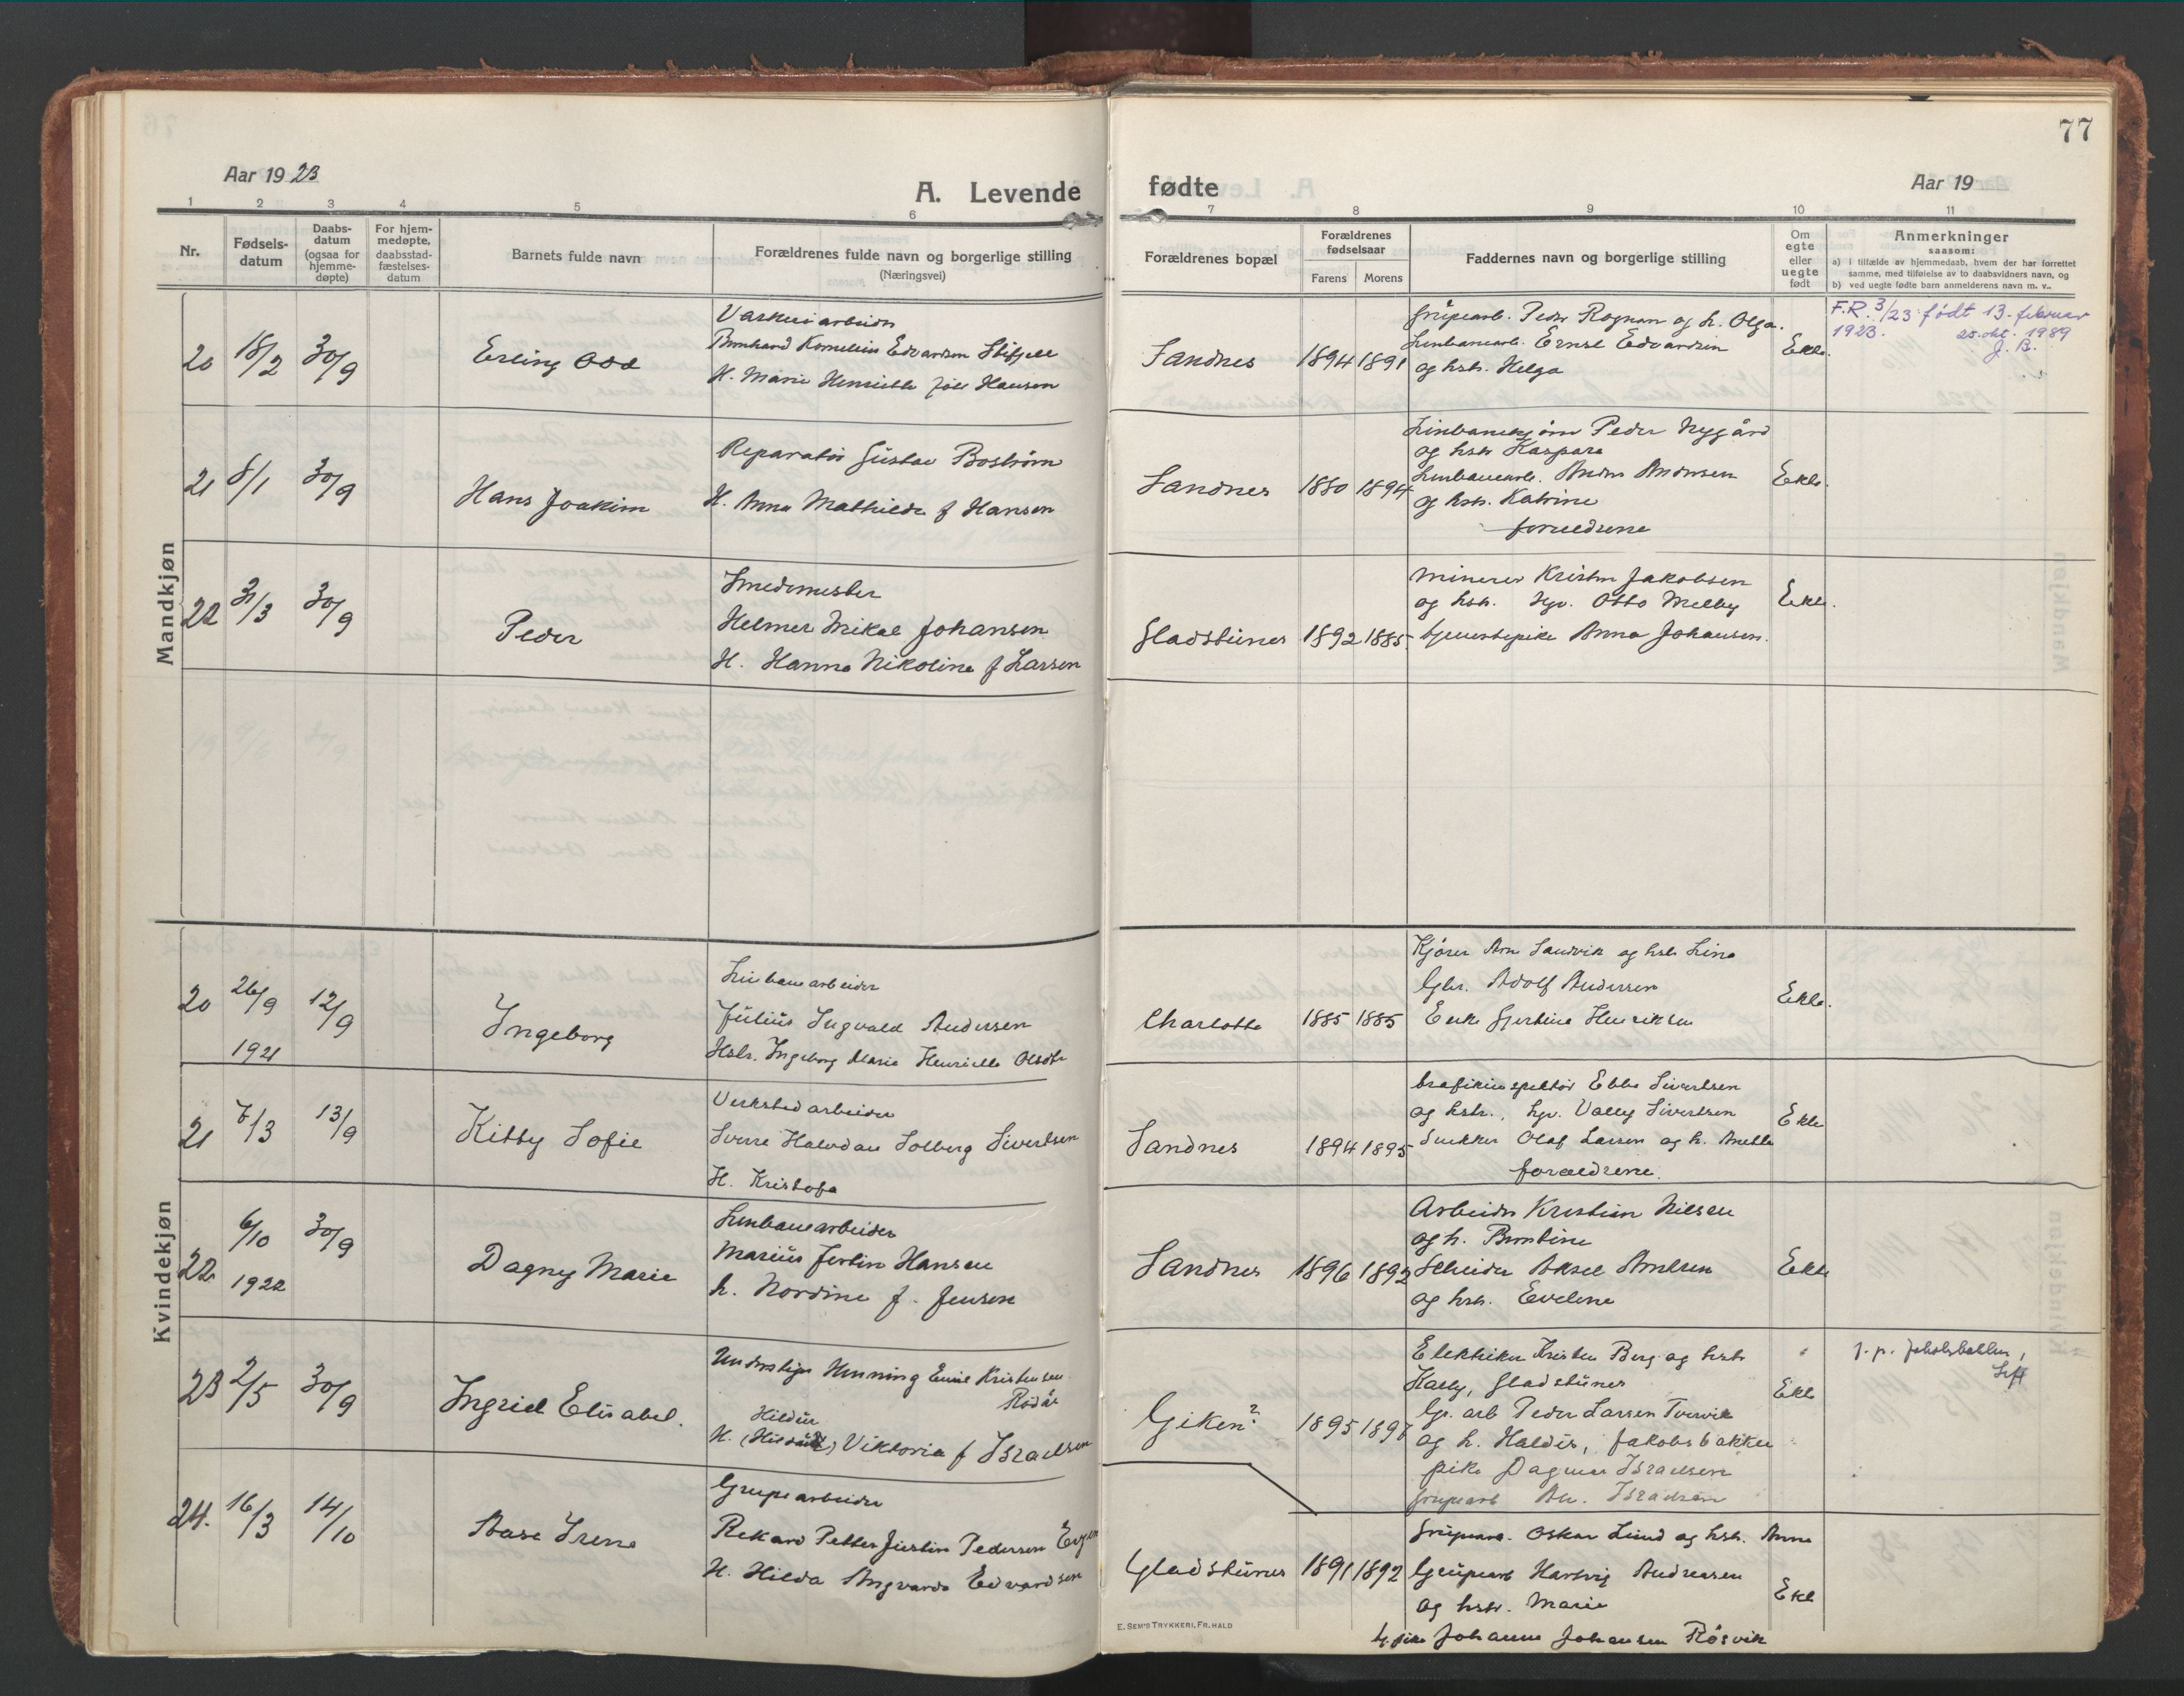 77
Aar 19 23
A. Levende
fødte
Aar 19
1 2 3 4 5 6 7 8 9 10 11
Nr.
Fødsels-
datum
Daabs-
datum
(ogsaa for
hjemme-
døpte)
For hjem-
medøpte,
daabsstad-
fæstelses-
datum
Barnets fulde navn
Forældrenes fulde navn og borgerlige stilling
(Næringsvei)
Forældrenes bopæl
Forældrenes
fødselsaar
Farens Morens
Faddernes navn og borgerlige stilling
Om
egte
eller
uegte
født
Anmerkninger
saasom:
a) i tilfælde av hjemmedaab, hvem der har forrettet
samme, med tilføielse av to daabsvidners navn, og
b) ved uegte fødte barn anmelderens navn m. v..
Mandkjøn
20 18/2 30/9 Erling Odd
Vaskeriarbeider
Bernhard Kornelius Edvardsen
H. Marie Henriette født Hansen
Sandnes 1894 1891
Grupearb. Peder Rognan og h. Olga.
Linbanearb. Ernst Edvardsen
og hstr. Helga
Ekte.
F.R. 3/23 født 13. februar
1923. 25. okt. 1989
J. B.
21 8/1 30/9 Hans Joakim
Reparatør Gustav Boström
H. Anna Mathilde f Hansen
Sandnes 1880 1894
Peder Nygård
og hstr Kaspara
Linbanearb. Anders Andersen
og hstr. Katrine
forældrene
Ekte.
22 31/3 30/9 Peder
Smedmester
Helmer Mikal Johansen
H. Hanna Nikoline f Larsen
Gladstunes 1892 1885
Minerer Kristen Jakobsen
og hstr. Hgr. Otto Melby
tjenestepike Anna Johansen.
Ekte.
Kvindekjøn
20 26/9 1921 12/9 Ingeborg
Linbanearbeider
Julius Ingvald Andersen
Hstr. Ingeborg Marie Henriette Olsdtr
Charlotta 1885 1885
Kjører Arne Sandvik og hstr Lina
Gbr. Adolf Andersen
Enke Gjertine Henriksen
Ekte.
21 7/3 13/9 Kitty Sofie
Verkstedarbeider
Sverre Halvdan Solberg Sivertsen
H. Kristofa
Sandnes 1894 1895
trafikinspektør Ebbe Sivertsen
og hstr., hgr. Vally Sivertsen
Snekker Olaf Larsen og h. Anette
forældrene.
Ekte
22 6/10 1922 30/9 Dagny Marie
Linbanearbeider
Marius Jentin Hansen
h. Nordine f. Jensen
Sandnes 1896 1892
Arbeider Kristian Nilsen
og h. Berntine
Aksel Amlsen
og hstr. Eveline
Ekte
23 2/5 30/9 Ingrid Elisabet.
Understiger Henning Emil Kristensen
Rödås
Hildur
H. Viktoria f Israelsen
Giken? 1895 1896
Elektriker Kristen Berg og hstr
Karly, Gladstunes
Gr. arb Peder Larsen Torvik
og h. Haldis, Jakobsbakken
pike Dagmar Israelsen
Grupearb Israelsen
Ekte
f. p. Jakobsbakken,
24. 16/3 14/10 Aase Irene
Grupearbeider
Rekard Petter Justin Pedersen
H. Hilda Angvarda Edvardsen
Gladstunes 1891 1892
Grupearb. Oskar Lund og hstr. Anna
Grupearb Hartvig Andreasen
og hstr. Marie
tj. pike Johanne Johansen Røsvik
Ekt
E. SEM'S TRYKKERI, FR.HALD